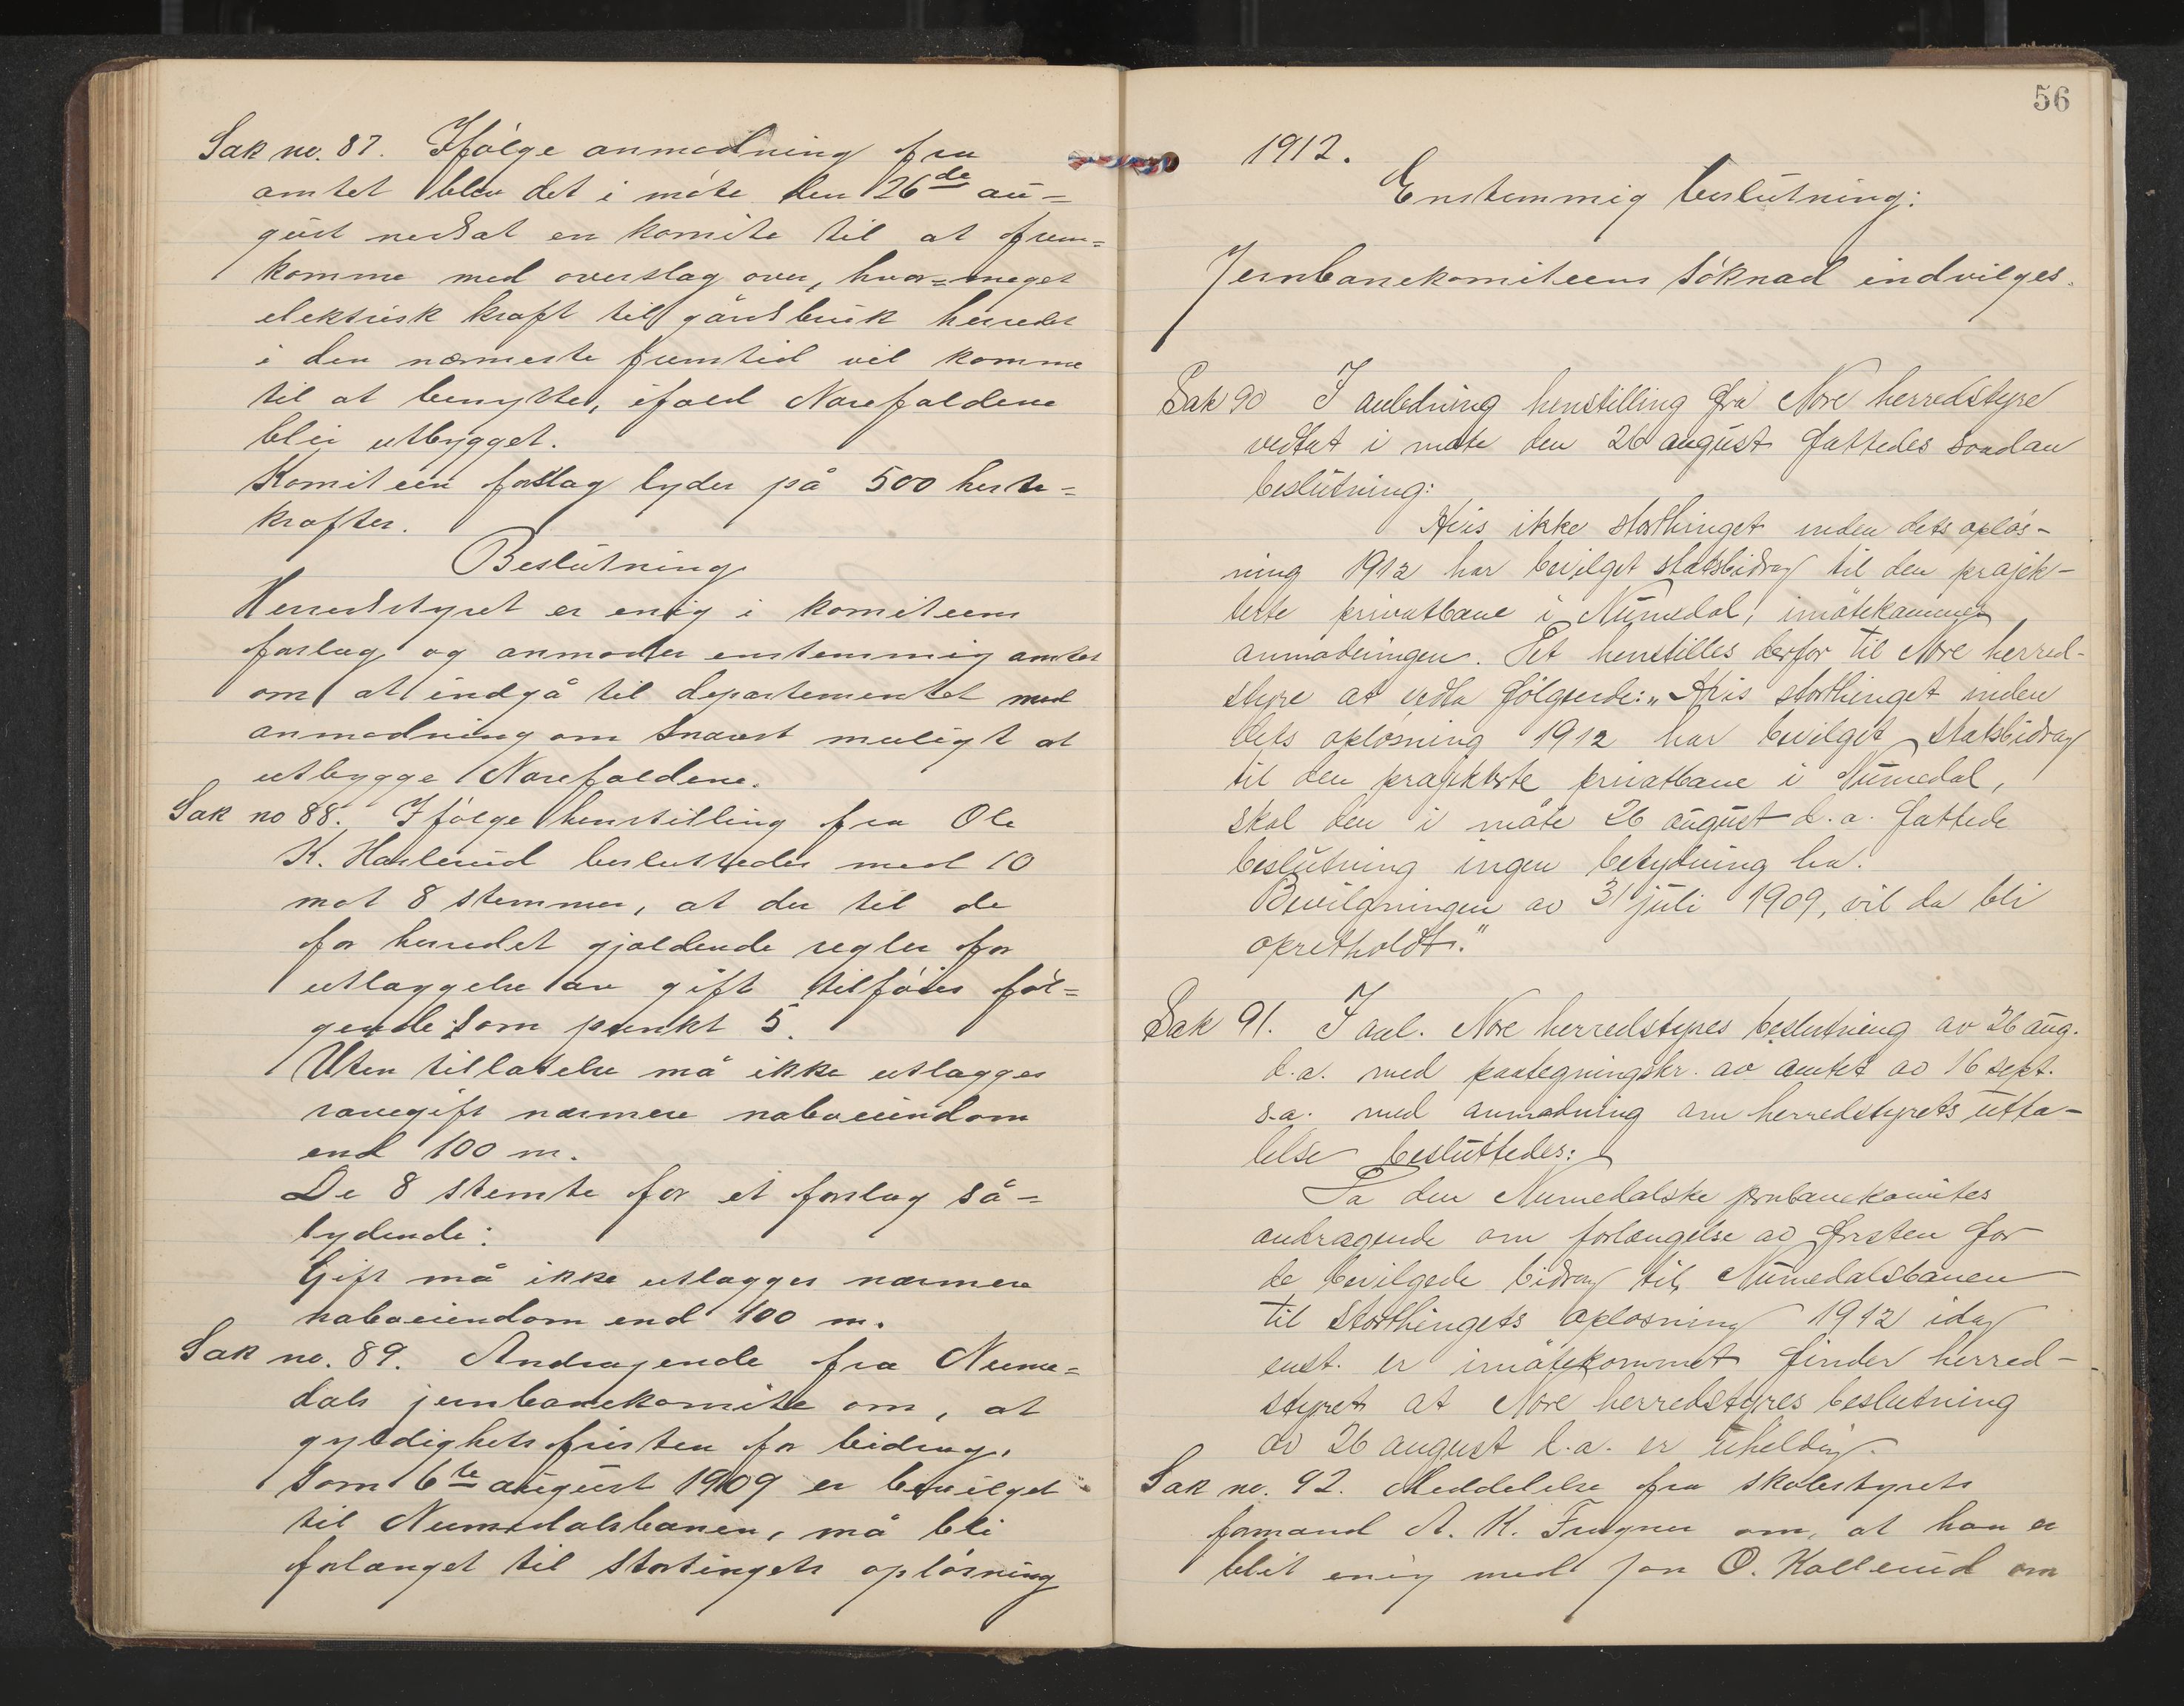 Sak no. 87. Ifølge anmodning fra
amtet blev det i møte den 26de au=
gust nedsat en komite til at frem=
komme med overslag over, hvor=meget
elektrisk kraft til gårdsbruk herredet
i den nærmeste fremtid vil komme
til at benyttes, ifald Norefaldene
blir utbygget.
Komiteen forslag lyder på 500 heste=
kræfter.
Beslutning
Herredstyret er enig i komiteens
forslag og anmoder enstemmig amtet
om at indgå til departementet med
anmodning om snarest muligt at
utbygge Norefaldene.
Sak no 88. Ifølge henstilling fra Ole
K. Haslerud besluttedes med 10
mot 8 stemmer, at der til de
for herredet gjældende regler for
utlæggelse av gift tilføies føl=
gende som punkt 5.
Uten tillatelse må ikke utlægges
rævegift nærmere naboeiendom
end 100 m.
De 8 stemte for et forslag så=
lydende:
Gift må ikke utlægges nærmere
naboeiendom end 100 m.
Sak no. 89. Andragende fra Nume=
dals jernbanekomite om, at
gyldighetsfristen for bidrag,
som 6te august 1909 er bevilget
til Numedalsbanen, må bli
forlænget til stortingets opløsning
56
1912.
Enstemmig beslutning:
Jernbanekomiteens søknad indvilges.
Sak 90 I anledning henstilling fra Nore herredstyre
vedtat i møte den 26 august fattedes saadan
beslutning:
Hvis ikke storthinget inden dets opløs-
ning 1912 har bevilget statsbidrag til den projek-
terte privatbane i Numedal, imøtekommes
anmodningen. Det henstilles derfor til Nore herred-
styre at vedta følgende: "Hvis storthinget inden
dets opløsning 1912 har bevilget statsbidrag
til den projekterte privatbane i Numedal,
skal den i møte 26 august d.a. fattede
beslutning ingen betydning ha.
Bevilgningen av 31 juli 1909, vil da bli
opretholdt."
Sak 91. I anl. Nore herredstyres beslutning av 26 aug.
d.a. med paategningskr. av amtet av 16 sept.
s.a. med anmodning om herredstyrets utta-
lelse besluttedes:
Da den Numedalske jernbanekomites
andragende om forlængelse av fristen for
de bevilgede bidrag til Numedalsbanen
til storthingets opløsning 1912 idag
enst. er imøtekommet finder herred-
styret at Nore herredstyres beslutning
av 26 august d.a. er uheldig.
Sak no. 92. Meddelelse fra skolestyrets
formand A. K. Frygner om, at han er
blit enig med Jon O. Kallerud om